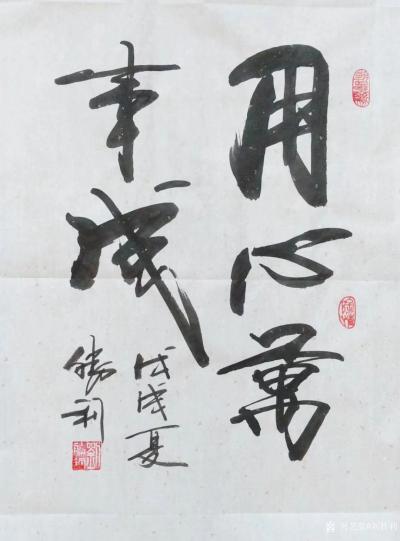 用心萬
事成
戊戌夏
勝利